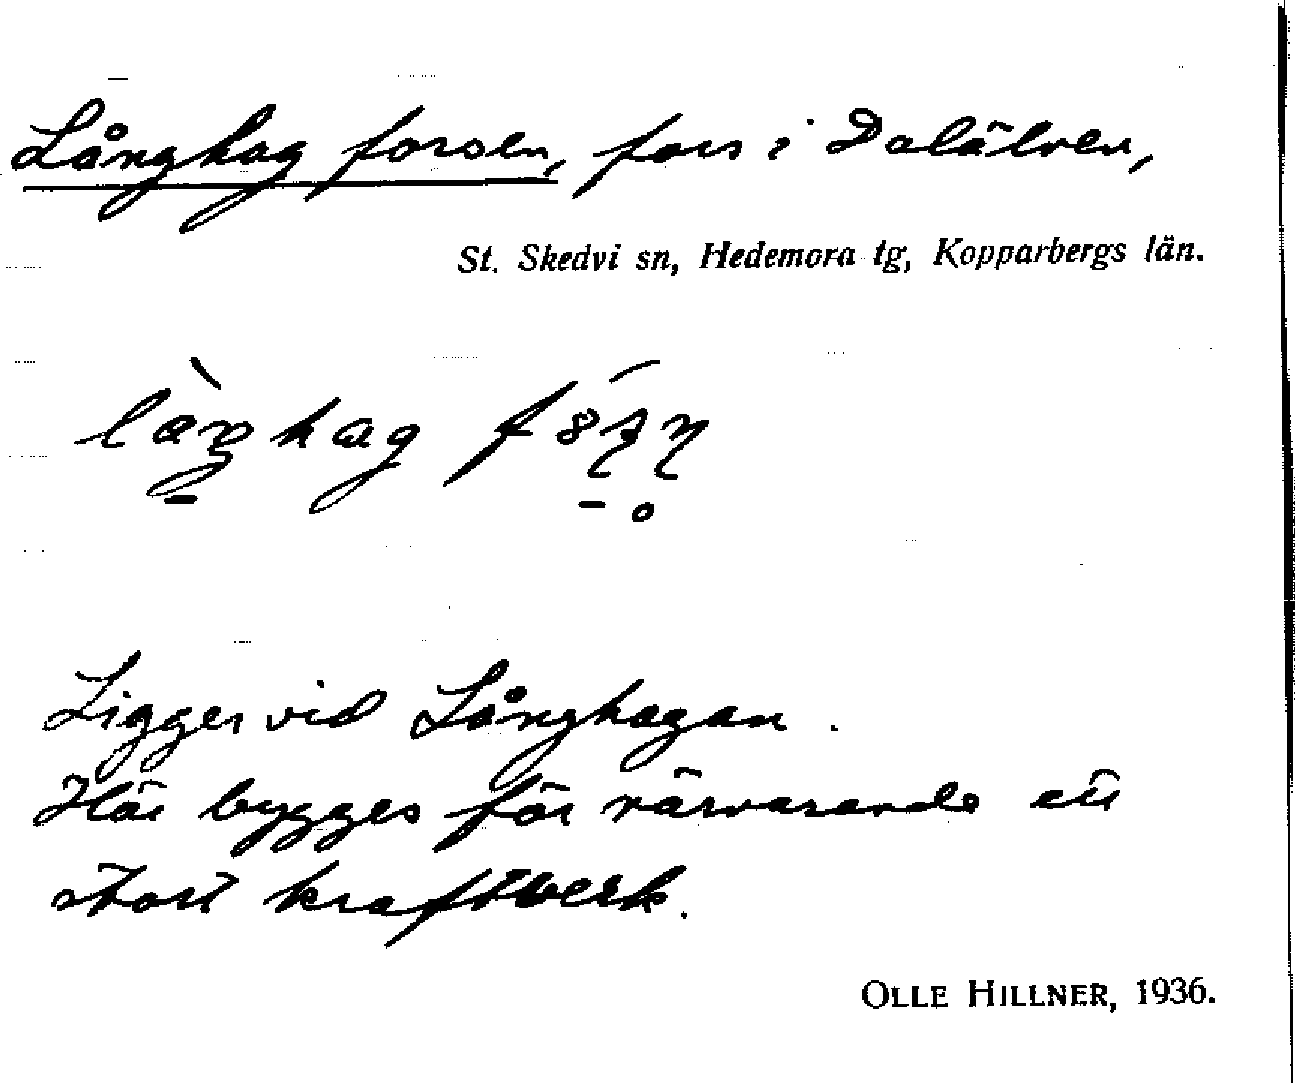 Långhag forsen, fors i Dalälven,
St. Skedvi sn, Hedemora tg, Kopparbergs län.
Ligger vid Långhagan.
Här bygges för närvarande ett
stort kraftverk.
OLLE HILLNER, 1936.